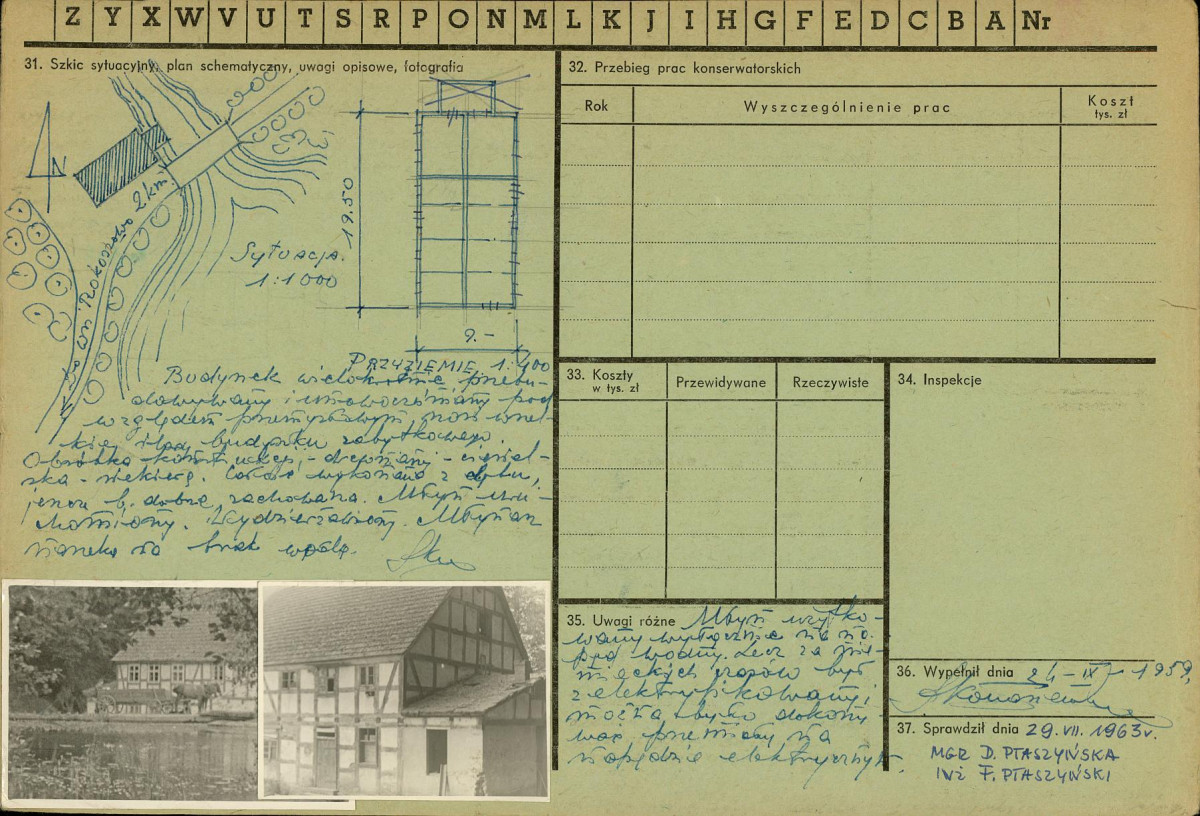 Z Y X W V U T S R P O N M L K J I H G F E D C B A Nr
31. Szkic sytuacyjny, plan schematyczny, uwagi opisowe, fotografia
N
2 km
Rokoszowo
19.50
Sytuacja.
1:1000
9.-
PRZYZIEMIE 1:400
Budynek wielokrotnie przebu-
dowywany i unowocześniany pod
względem przemysłowym, nosi
budynku zabytkowego.
Obróbka - ciesiel-
ska - siekierą. Całość wykonana z dębu,
jeszcze b. dobrze zachowana. Młyn uru-
chomiony. Wydzierżawiony. Młynarz
narzeka na brak wody.
32. Przebieg prac konserwatorskich
Rok
Wyszczególnienie prac
Koszt
tys. zł
33. Koszty
w tys. zł
Przewidywane
Rzeczywiste
34. Inspekcje
35. Uwagi różne Młyn użytko-
wany wyłącznie na na-
pęd wodny. Lecz za nie-
mieckich czasów był
zelektryfikowany i
można było dokony-
wać przemiały na
napędzie elektrycznym.
36. Wypełnił dnia 24-IX-1959,
37. Sprawdził dnia 29.VII.1963r.
MGR D. PTASZYŃSKA
INŻ F. PTASZYŃSKI